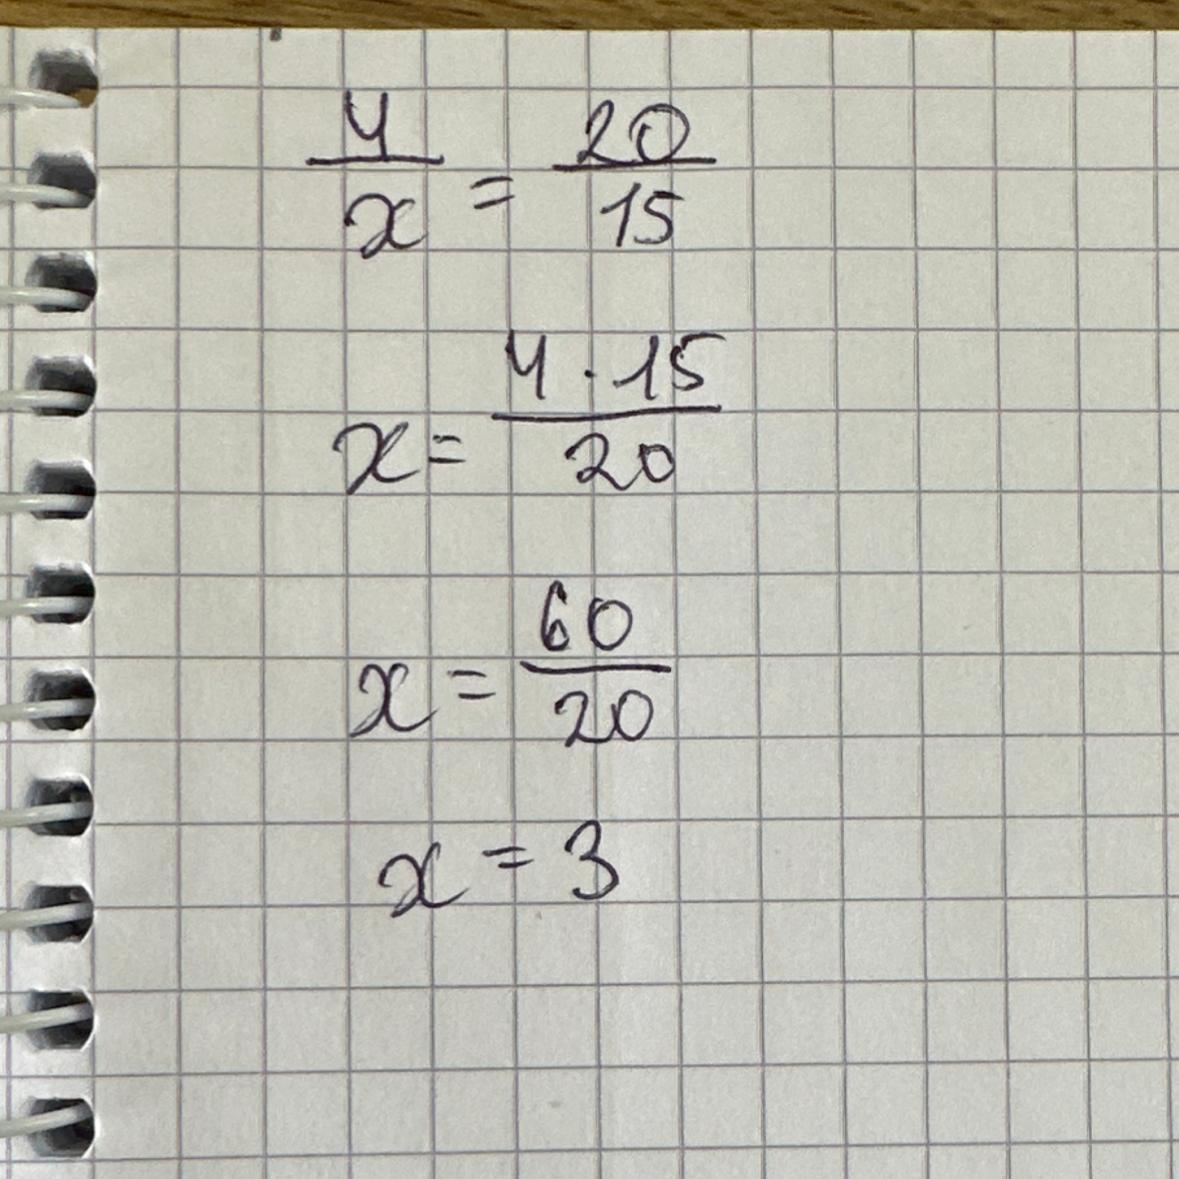 4/x = 20/15
x = 4 · 15/20
x = 60/20
x = 3